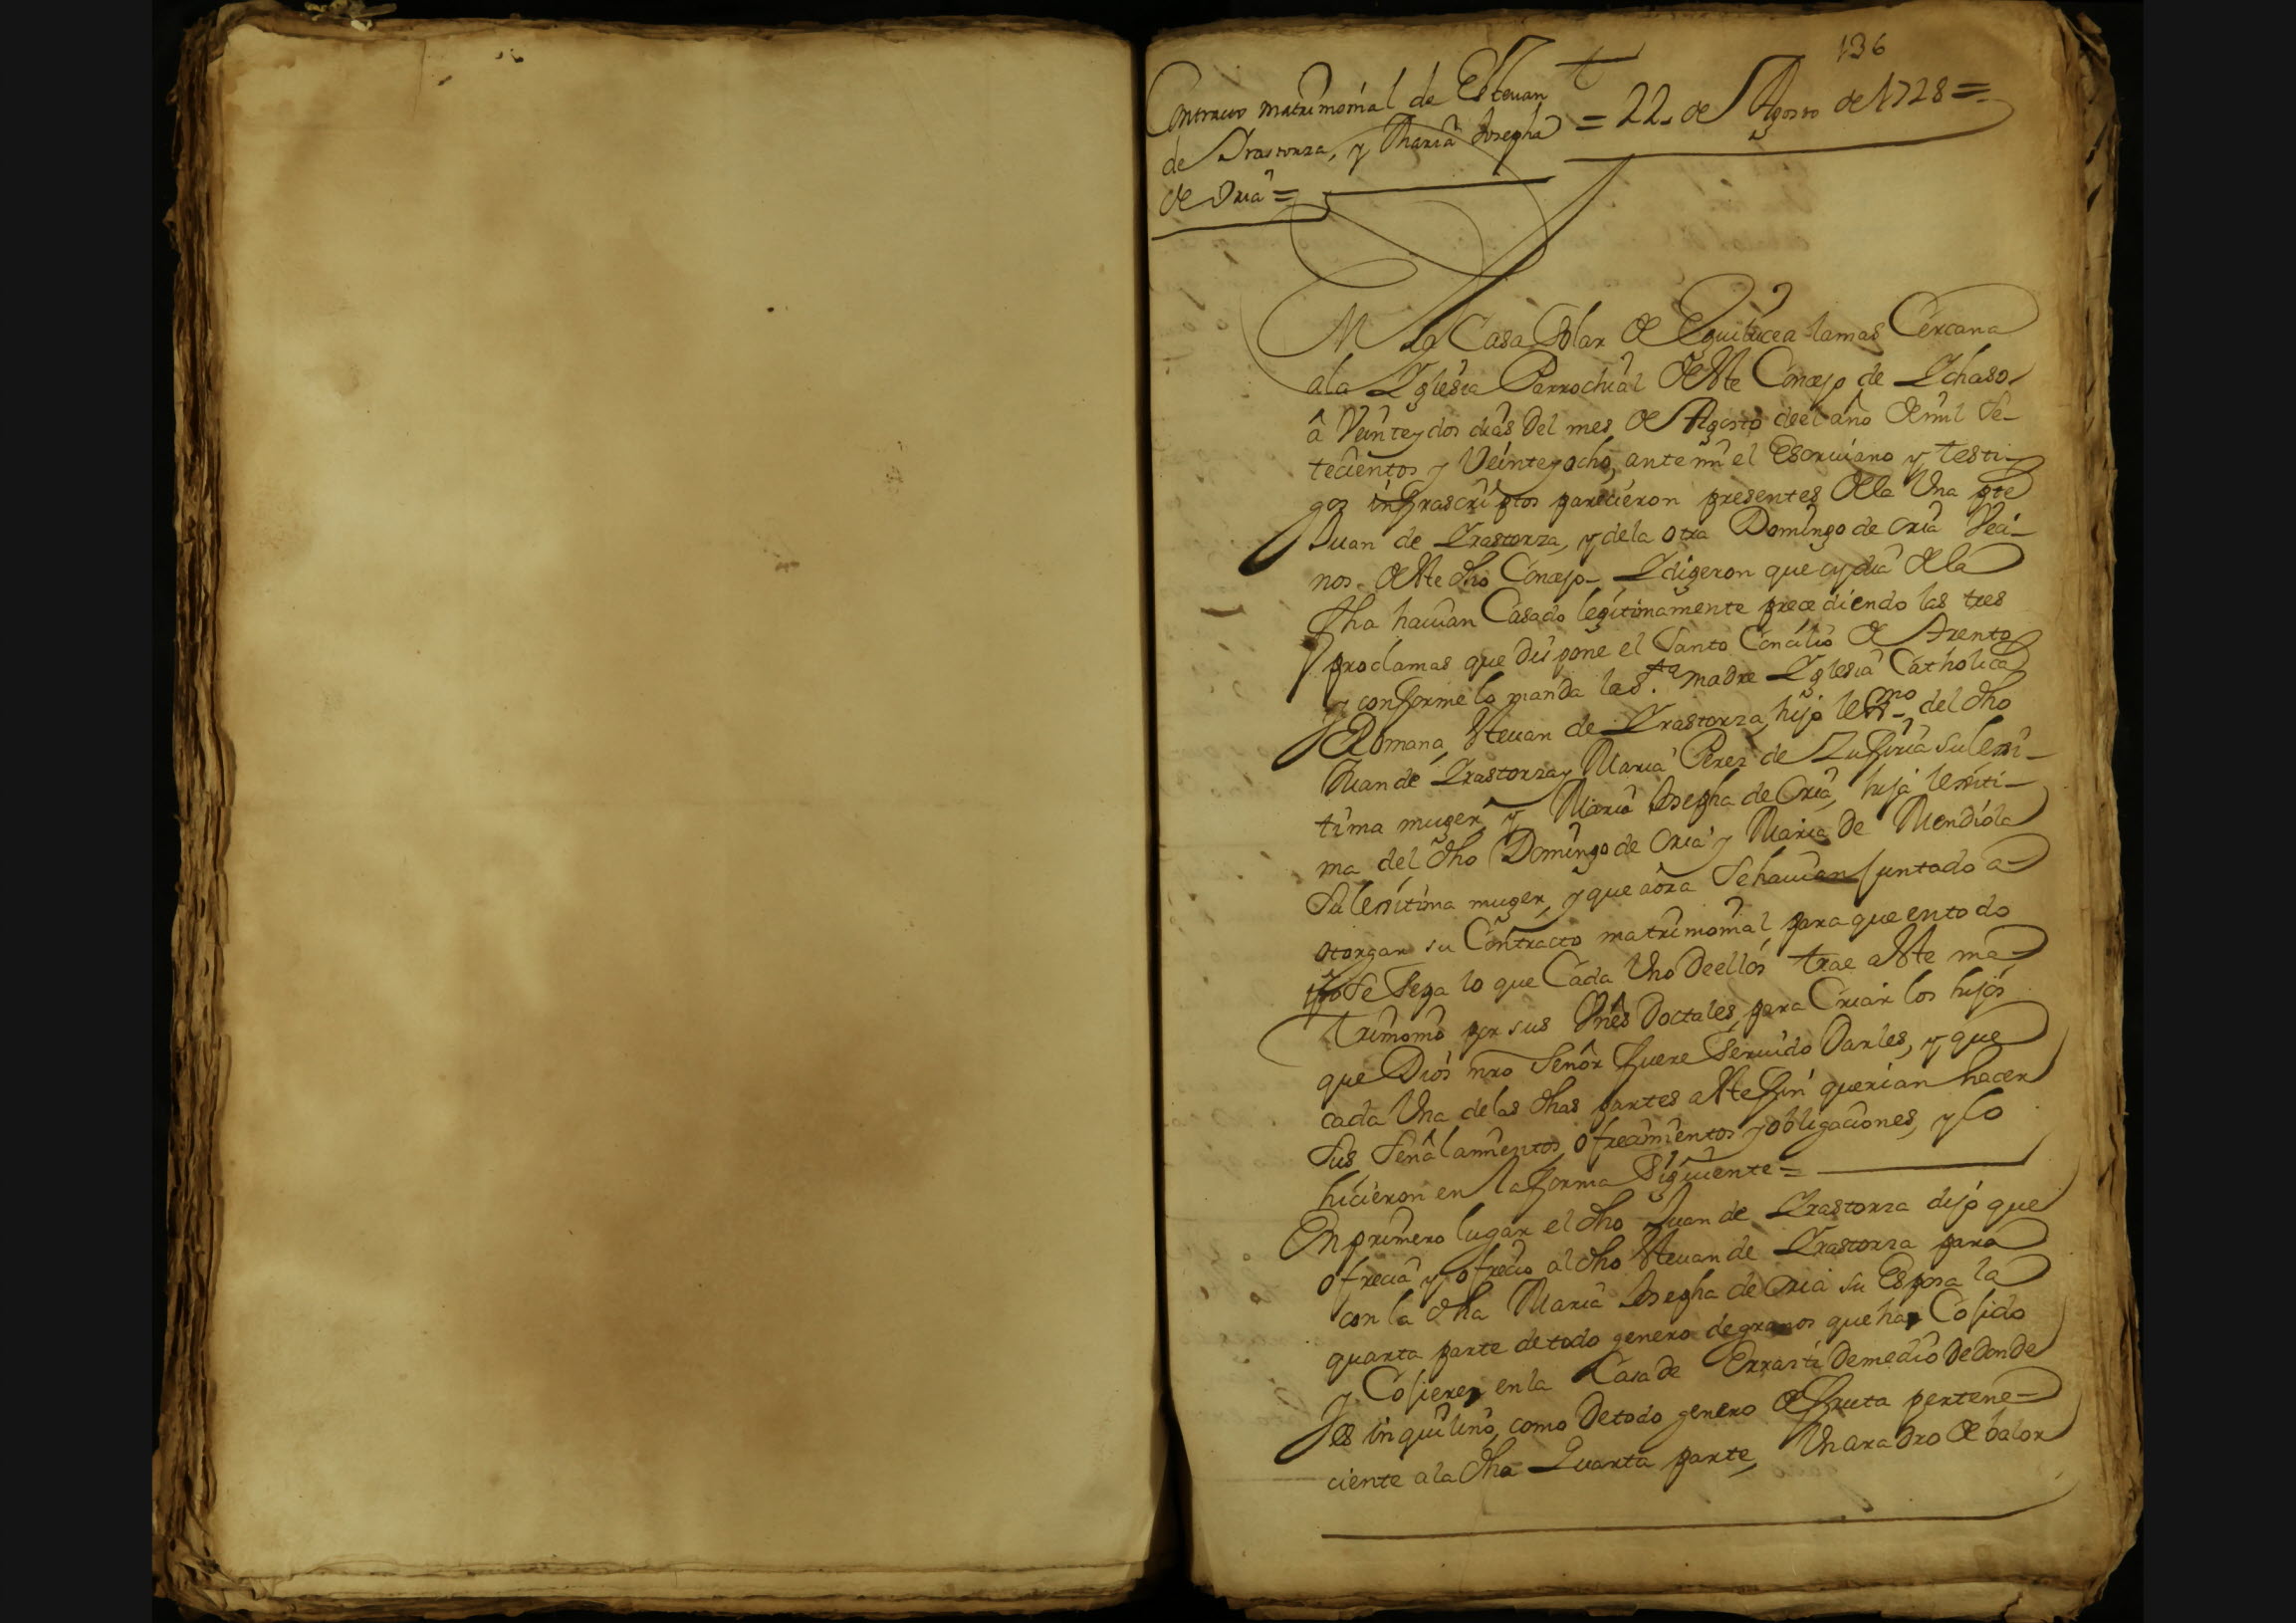 136
Contracto matrimonial de Esteuan
de Yrastorza, y Maria Josepha
de Oria =
= 22. de Agosto de 1728 =
En la Casa Solar de Eguilucea lamas Cercana
ala Yglesia Parrochial deste Concejo de Ychaso,
â Veinte y dos dias del mes de Agosto deel año de mil se-
tecientos y Veinte y ocho, ante mi el Escriuano y testi-
gos infrascriptos parecieron presentes de la Una pte
Juan de Yrastorza, y de la otra Domingo de Oria Veci-
nos deste dho Concejo, Y digeron que oy dia de la
fha hauian Casado legitimamente precediendo las tres
proclamas que dispone el Santo Concilio de Trento
y conforme lo manda la S.ta madre Yglesia Catholica
Romana, Steuan de Yrastorza, hijo lexmo del dho
Juan de Yrastorza y Maria Perez de su lexi-
tima muger, y Maria Josepha de Oria, hija lexiti-
ma del dho Domingo de Oria y Maria de Mendiola
su lexitima muger, y que aora se hauian juntado a
otorgar su Contracto matrimonial para que en todo
tpo se sepa lo que Cada Uno de ellos trae a este ma-
trimonio por sus vnes Doctales, para Criar los hijos
que Dios nro Señor fuere seruido Darles, y que
cada Una de las dhas partes a este fin querian hacer
sus señalamientos, ofrecimientos y obligaciones, y lo
hicieron en la forma Siguiente =
En primero lugar el dho Juan de Yrastorza dijo que
ofrecia y ofrecio al dho Steuan de Yrastorza para
con la dha Maria Josepha de Oria su Esposa la
quarta parte de todo genero de granos que han Cojido
y Cojieren en la Casa de Errasti de medio de donde
es inquilino, como de todo genero de fruta pertene-
ciente a la dha Quarta parte, Un aradro de balor